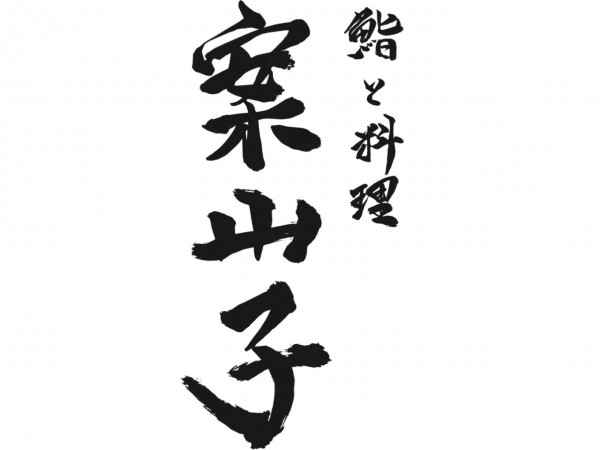 鮨と料理
案山子